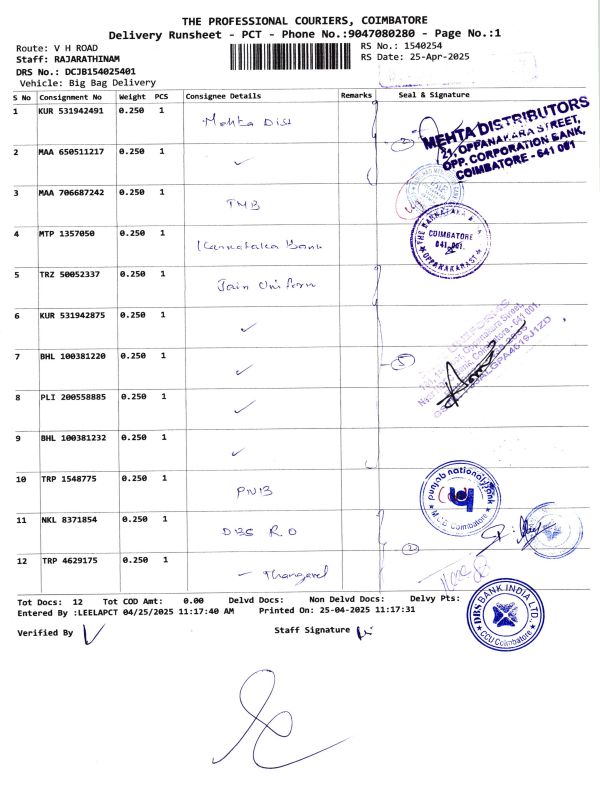 THE PROFESSIONAL COURIERS, COIMBATORE
Delivery Runsheet - PCT - Phone No.:9047080280 - Page No.:1
Route: V H ROAD
RS No.: 1540254
Staff: RAJARATHINAM
RS Date: 25-Apr-2025
DRS No.: DCJB154025401
Vehicle: Big Bag Delivery
S No Consignment No Weight PCS Consignee Details Remarks Seal & Signature
1 KUR 531942491 0.250 1 Mehta Dist
MEHTA DISTRIBUTORS
21, OPPANAKARA STREET,
OPP. CORPORATION BANK,
COIMBATORE - 641 001
2 MAA 650511217 0.250 1 ✓
3 MAA 706687242 0.250 1 TMB
4 MTP 1357050 0.250 1 Karnataka Bank
THE KARNATAKA
COIMBATORE
641 001.
OPPANAKARA ST
5 TRZ 50052337 0.250 1 Jain Uniform
6 KUR 531942875 0.250 1 ✓
7 BHL 100381220 0.250 1 ✓
5
8 PLI 200558885 0.250 1 ✓
9 BHL 100381232 0.250 1 ✓
10 TRP 1548775 0.250 1 PNB
punjab national bank
Coimbatore
11 NKL 8371854 0.250 1 DBS R O
2
12 TRP 4629175 0.250 1 - Thangavel
DBS BANK INDIA LTD.,
CCU Coimbatore
Tot Docs: 12 Tot COD Amt: 0.00 Delvd Docs: Non Delvd Docs: Delvy Pts:
Entered By :LEELAPCT 04/25/2025 11:17:40 AM Printed On: 25-04-2025 11:17:31
Verified By Staff Signature